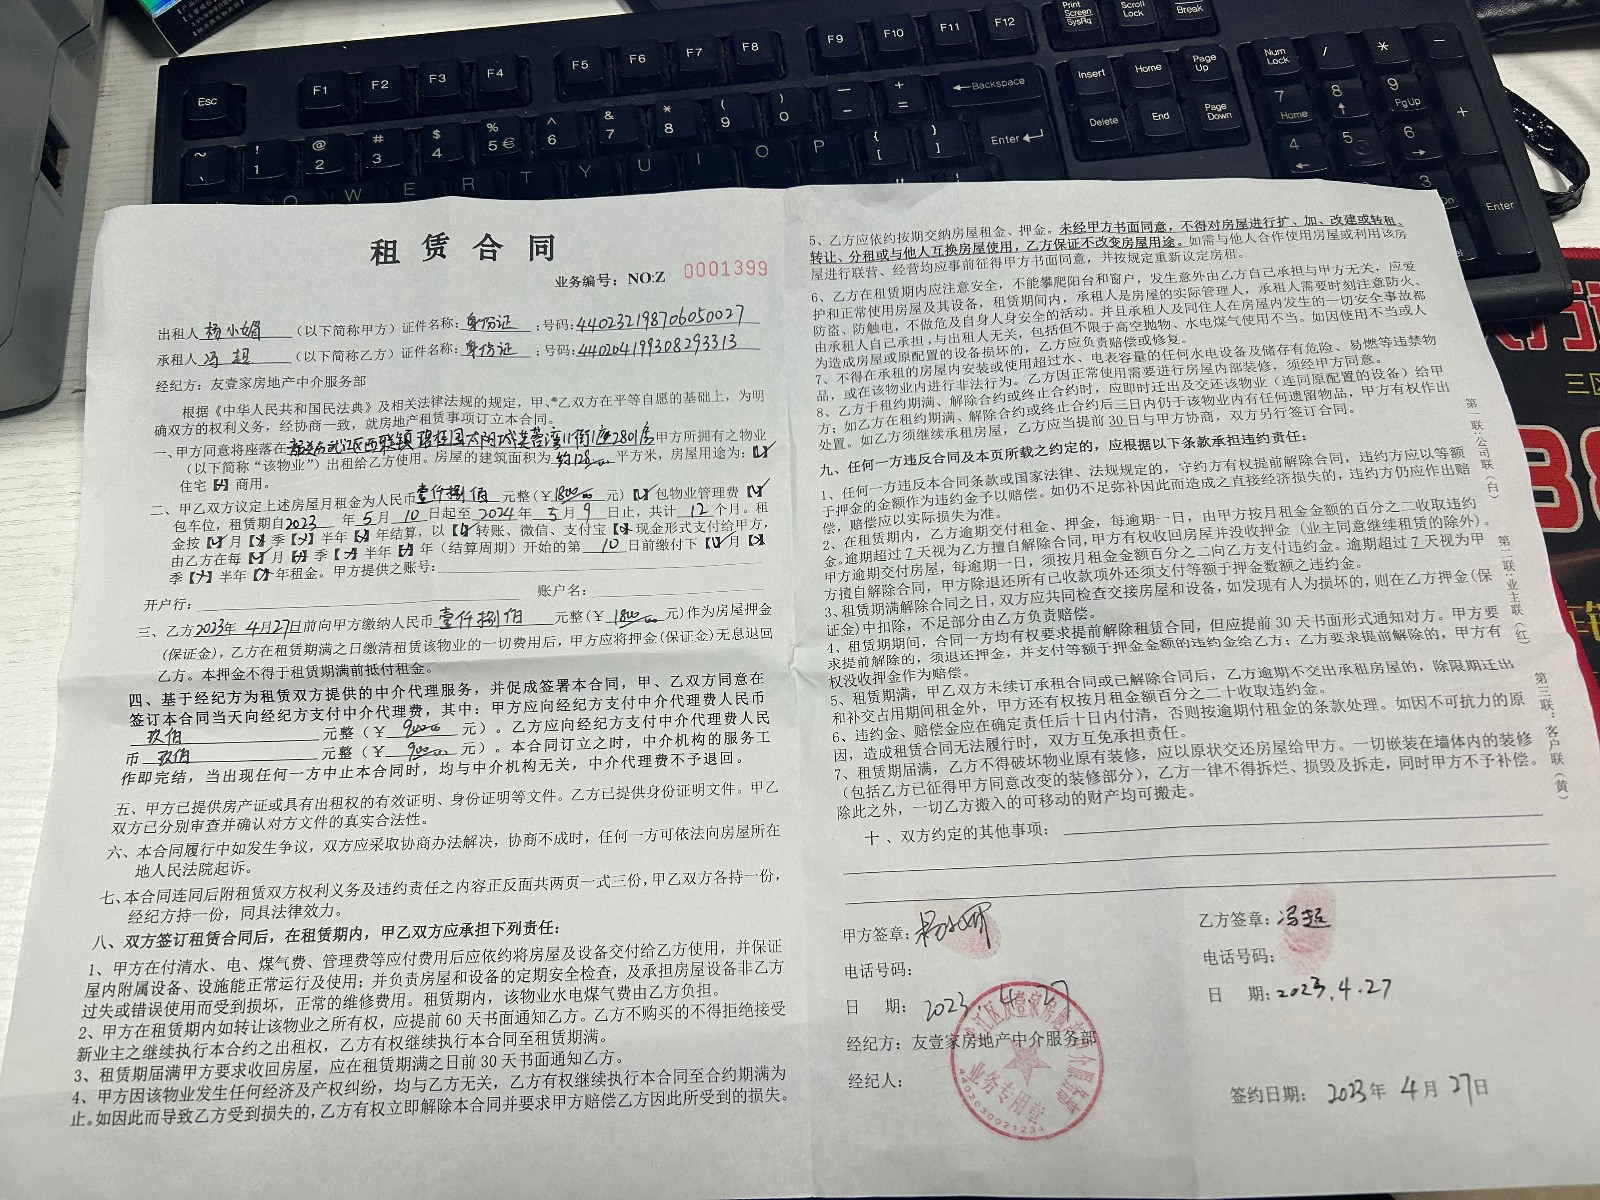 Esc
F1
F2
F3
F4
F5
F6
F7
F8
F9
F10
F11
F12
Print Screen SysRq
Scroll Lock
Break
Backspace
Insert
Home
Page Up
Num Lock
Delete
End
Page Down
Enter
Enter
租赁合同
业务编号：NO:Z 0001399
出租人 杨小媚 （以下简称甲方）证件名称：身份证 ;号码：440232198706050027
承租人 冯超 （以下简称乙方）证件名称：身份证 ;号码：440204199308293313
经纪方：友壹家房地产中介服务部
根据《中华人民共和国民法典》及相关法律法规的规定，甲、乙双方在平等自愿的基础上，为明
确双方的权利义务，经协商一致，就房地产租赁事项订立本合同。
一、甲方同意将座落在韶关市武江区西联镇碧桂园太阳城芙蓉湾11街1座2801房甲方所拥有之物业
（以下简称“该物业”）出租给乙方使用。房屋的建筑面积为 约128 平方米，房屋用途为：【✓】
住宅【】商用。
二、甲乙双方议定上述房屋月租金为人民币壹仟捌佰 元整（￥1800.00 元）【✓】包物业管理费【✓】
包车位，租赁期自2023 年 5 月 10 日起至 2024 年 5 月 9 日止，共计 12 个月。租
金按【✓】月【】季【】半年【】年结算，以【✓】转账、微信、支付宝【】现金形式支付给甲方，
由乙方在每【✓】月【】季【】半年【】年（结算周期）开始的第 10 日前缴付下【✓】月【】
季【】半年【】年租金。甲方提供之账号：
开户行： 账户名：
三、乙方2023年 4月27日前向甲方缴纳人民币 壹仟捌佰 元整（￥ 1800.00 元）作为房屋押金
（保证金），乙方在租赁期满之日缴清租赁该物业的一切费用后，甲方应将押金（保证金）无息退回
乙方。本押金不得于租赁期满前抵付租金。
四、基于经纪方为租赁双方提供的中介代理服务，并促成签署本合同，甲、乙双方同意在
签订本合同当天向经纪方支付中介代理费，其中：甲方应向经纪方支付中介代理费人民币
玖佰 元整（￥ 900.00 元）。乙方应向经纪方支付中介代理费人民
币 玖佰 元整（￥ 900.00 元）。本合同订立之时，中介机构的服务工
作即完结，当出现任何一方中止本合同时，均与中介机构无关，中介代理费不予退回。
五、甲方已提供房产证或具有出租权的有效证明、身份证明等文件。乙方已提供身份证明文件。甲乙
双方已分别审查并确认对方文件的真实合法性。
六、本合同履行中如发生争议，双方应采取协商办法解决，协商不成时，任何一方可依法向房屋所在
地人民法院起诉。
七、本合同连同后附租赁双方权利义务及违约责任之内容正反面共两页一式三份，甲乙双方各持一份，
经纪方持一份，同具法律效力。
八、双方签订租赁合同后，在租赁期内，甲乙双方应承担下列责任：
1、甲方在付清水、电、煤气费、管理费等应付费用后应依约将房屋及设备交付给乙方使用，并保证
屋内附属设备、设施能正常运行及使用；并负责房屋和设备的定期安全检查，及承担房屋设备非乙方
过失或错误使用而受到损坏，正常的维修费用。租赁期内，该物业水电煤气费由乙方负担。
2、甲方在租赁期内如转让该物业之所有权，应提前 60 天书面通知乙方。乙方不购买的不得拒绝接受
新业主之继续执行本合约之出租权，乙方有权继续执行本合同至租赁期满。
3、租赁期届满甲方要求收回房屋，应在租赁期满之日前 30 天书面通知乙方。
4、甲方因该物业发生任何经济及产权纠纷，均与乙方无关，乙方有权继续执行本合同至合约期满为
止。如因此而导致乙方受到损失的，乙方有权立即解除本合同并要求甲方赔偿乙方因此所受到的损失。
5、乙方应依约按期交纳房屋租金、押金。未经甲方书面同意，不得对房屋进行扩、加、改建或转租、
转让、分租或与他人互换房屋使用，乙方保证不改变房屋用途。如需与他人合作使用房屋或利用该房
屋进行联营、经营均应事前征得甲方书面同意，并按规定重新议定房租。
6、乙方在租赁期内应注意安全，不能攀爬阳台和窗户，发生意外由乙方自己承担与甲方无关，应爱
护和正常使用房屋及其设备，租赁期间内，承租人是房屋的实际管理人，承租人需要时刻注意防火、
防盗、防触电，不做危及自身人身安全的活动。并且承租人及同住人在房屋内发生的一切安全事故都
由承租人自己承担，与出租人无关，包括但不限于高空抛物、水电煤气使用不当。如因使用不当或人
为造成房屋或原配置的设备损坏的，乙方应负责赔偿或修复。
7、不得在承租的房屋内安装或使用超过水、电表容量的任何水电设备及储存有危险、易燃等违禁物
品，或在该物业内进行非法行为。乙方因正常使用需要进行房屋内部装修，须经甲方同意。
8、乙方于租约期满、解除合约或终止合约时，应即时迁出及交还该物业（连同原配置的设备）给甲
方；如乙方在租约期满、解除合约或终止合约后三日内仍于该物业内有任何遗留物品，甲方有权作出
处置。如乙方须继续承租房屋，乙方应当提前 30 日与甲方协商，双方另行签订合同。
九、任何一方违反合同及本页所载之约定的，应根据以下条款承担违约责任：
1、任何一方违反本合同条款或国家法律、法规规定的，守约方有权提前解除合同，违约方应以等额
于押金的金额作为违约金予以赔偿。如仍不足弥补因此而造成之直接经济损失的，违约方仍应作出赔
偿，赔偿应以实际损失为准。
2、在租期内，乙方逾期交付租金、押金，每逾期一日，由甲方按月租金金额的百分之二收取违约
金。逾期超过 7 天视为乙方擅自解除合同，甲方有权收回房屋并没收押金（业主同意继续租赁的除外）。
甲方逾期交付房屋，每逾期一日，须按月租金金额百分之二向乙方支付违约金。逾期超过 7 天视为甲
方擅自解除合同，甲方除退还所有已收款项外还须支付等额于押金数额之违约金。
3、租赁期满解除合同之日，双方应共同检查交接房屋和设备，如发现有人为损坏的，则在乙方押金（保
证金）中扣除，不足部分由乙方负责赔偿。
4、租赁期期间，合同一方均有权要求提前解除租赁合同，但应提前 30 天书面形式通知对方。甲方要
求提前解除的，须退还押金，并支付等额于押金金额的违约金给乙方；乙方要求提前解除的，甲方有
权没收押金作为赔偿。
5、租赁期满，甲乙双方未续订承租合同或已解除合同后，乙方逾期不交出承租房屋的，除限期迁出
和补交占用期间租金外，甲方还有权按月租金金额百分之二十收取违约金。
6、违约金、赔偿金应在确定责任后十日内付清，否则按逾期付租金的条款处理。如因不可抗力的原
因，造成租赁合同无法履行时，双方互免承担责任。
7、租赁期届满，乙方不得破坏物业原有装修，应以原状交还房屋给甲方。一切嵌装在墙体内的装修
（包括乙方已征得甲方同意改变的装修部分），乙方一律不得拆烂、损毁及拆走，同时甲方不予补偿。
除此之外，一切乙方搬入的可移动的财产均可搬走。
十、双方约定的其他事项：
甲方签章：杨小媚
乙方签章：冯超
电话号码：
电话号码：
日 期：2023.4.27
日 期：2023.4.27
经纪方：友壹家房地产中介服务部
经纪人：
签约日期： 2023 年 4 月 27 日
业务专用章
4402030021234
第一联：公司联（白）
第二联：业主联（红）
第三联：客户联（黄）
三区